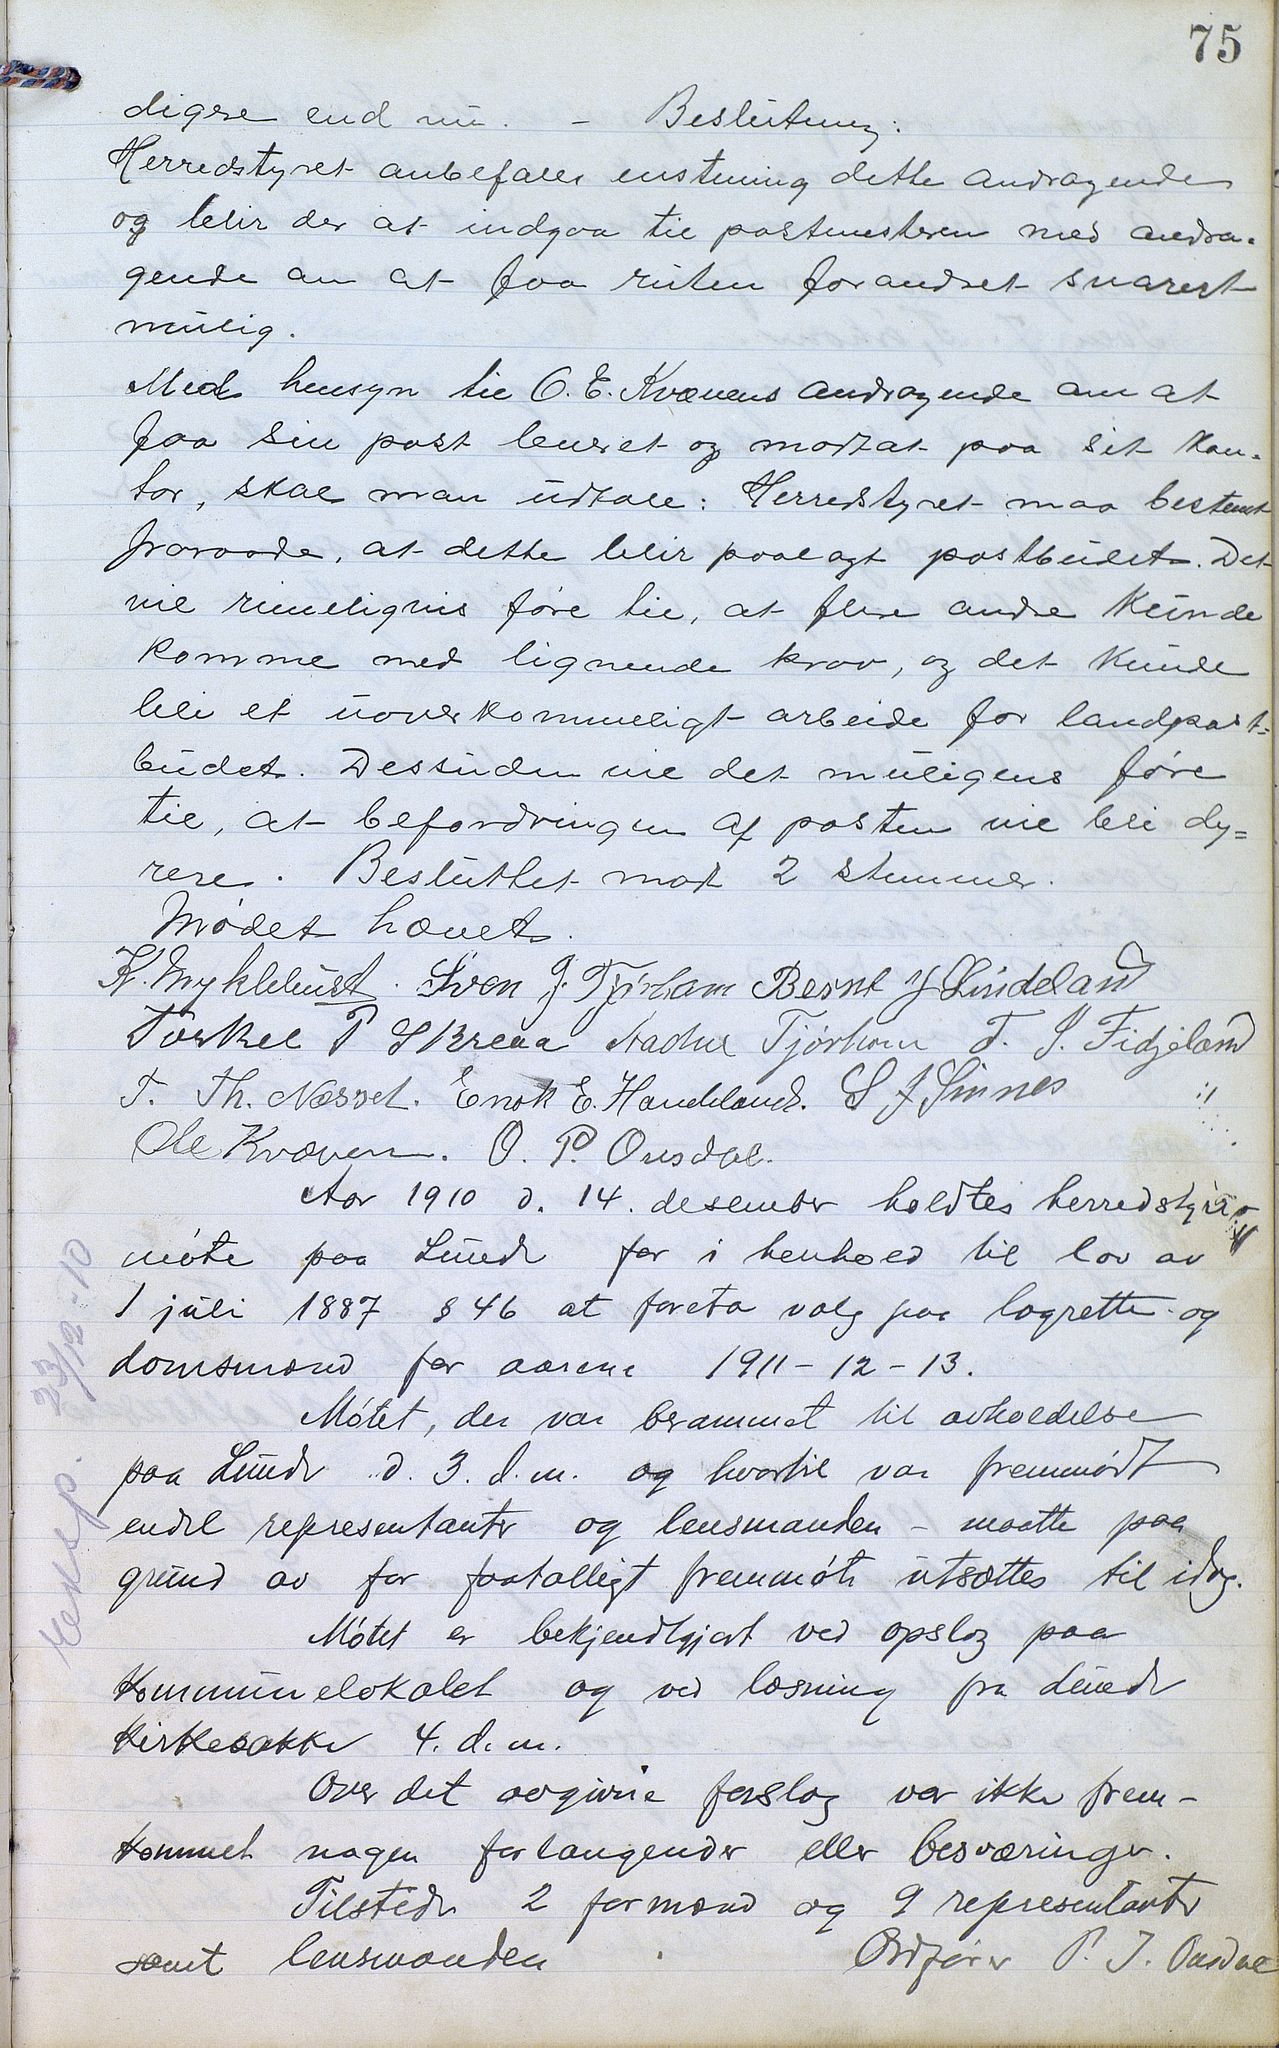 75
digre end nu. - Beslutning:
Herredstyret anbefaler enstemig dette andragende
og blir der at indgaa til postmesteren med andra-
gende om at faa ruten forandret snarest
mulig.
Med hensyn til O. E. Kvævens andragende om at
faa sin post leveret og modtat paa sit kon-
tor, skal man udtale: Herredstyret maa bestemt
fraraade, at dette blir paalagt postbudet. Det
vil rimeligvis føre til, at flere andre kunde
komme med lignende krav, og det kunde
bli et uoverkommeligt arbeide for landpost-
budet. Dessuden vil det muligens føre
til, at befordringen af posten vil bli dy=
rere. Besluttet mot 2 stemmer.
Mødet hævet.
K. Myklebust. Sven J. Tjørhom Bernt J Lindeland
Torkel P Skreaa Aadne Tjørhom T. J. Fidjeland
T. Th. Næsset. Enok E. Handeland. S J Sinnes
Ole Kvæven. O. P. Ousdal.
Aar 1910 d. 14. desember holdtes herredstyre-
møte paa Lunde for i henhold til lov av
1 juli 1887 § 46 at foreta valg paa lagrette- og
domsmænd for aarene 1911-12-13.
Møtet, der var berammet til avholdelse
paa Lunde d. 3. d.m. og hvortil var fremmødt
endel representanter og lensmanden - maatte paa
grund av for faatalligt fremmøte utsættes til idag.
Møtet er bekjendtgjort ved opslag paa
kommunelokalet og ved læsning fra Lunde
kirkebakke 4. d.m.
Over det avgivne forslag var ikke frem-
kommet nogen forlangender eller besværinger.
Tilstede 2 formænd og 9 representanter
samt lensmanden Ordfører P. J. Ousdal
Eksp. 23/12-10